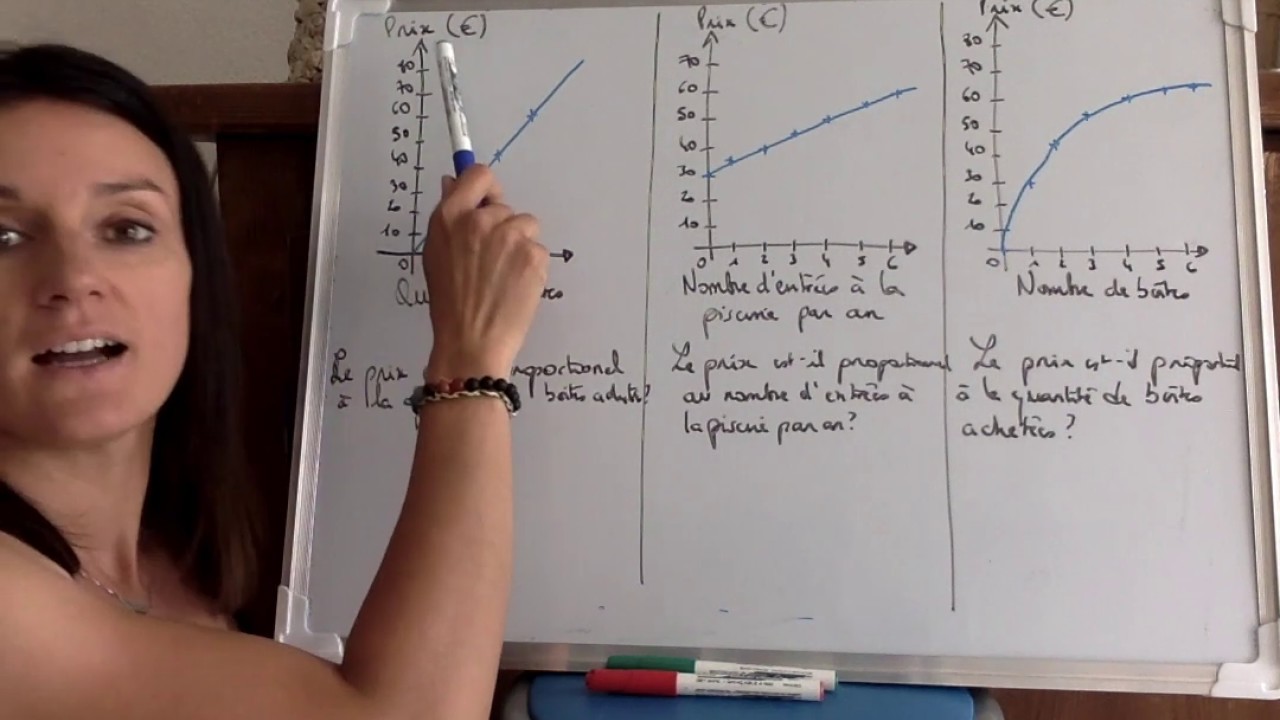 Prix (€)
80
70
60
50
40
30
20
10
0
Le prix proportionnel
à la boîtes achetées?
Prix (€)
70
60
50
40
30
20
10
0 1 2 3 4 5 6
Nombre d'entrées à la
piscine par an
Le prix est-il proportionnel
au nombre d'entrées à
la piscine par an?
Prix (€)
80
70
60
50
40
30
20
10
0 1 2 3 4 5 6
Nombre de boîtes
Le prix est-il proportionnel
à la quantité de boîtes
achetées?